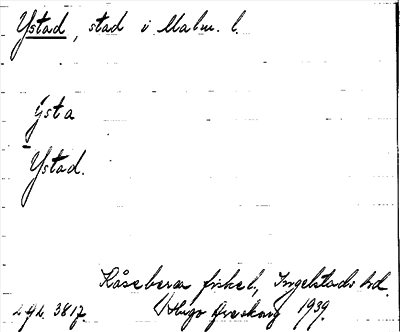 Ystad, stad i Malm. l.
Ysta
Ystad.
Kåseberga fiskel., Ingelstads hd.
Hugo Areskoug 1939.